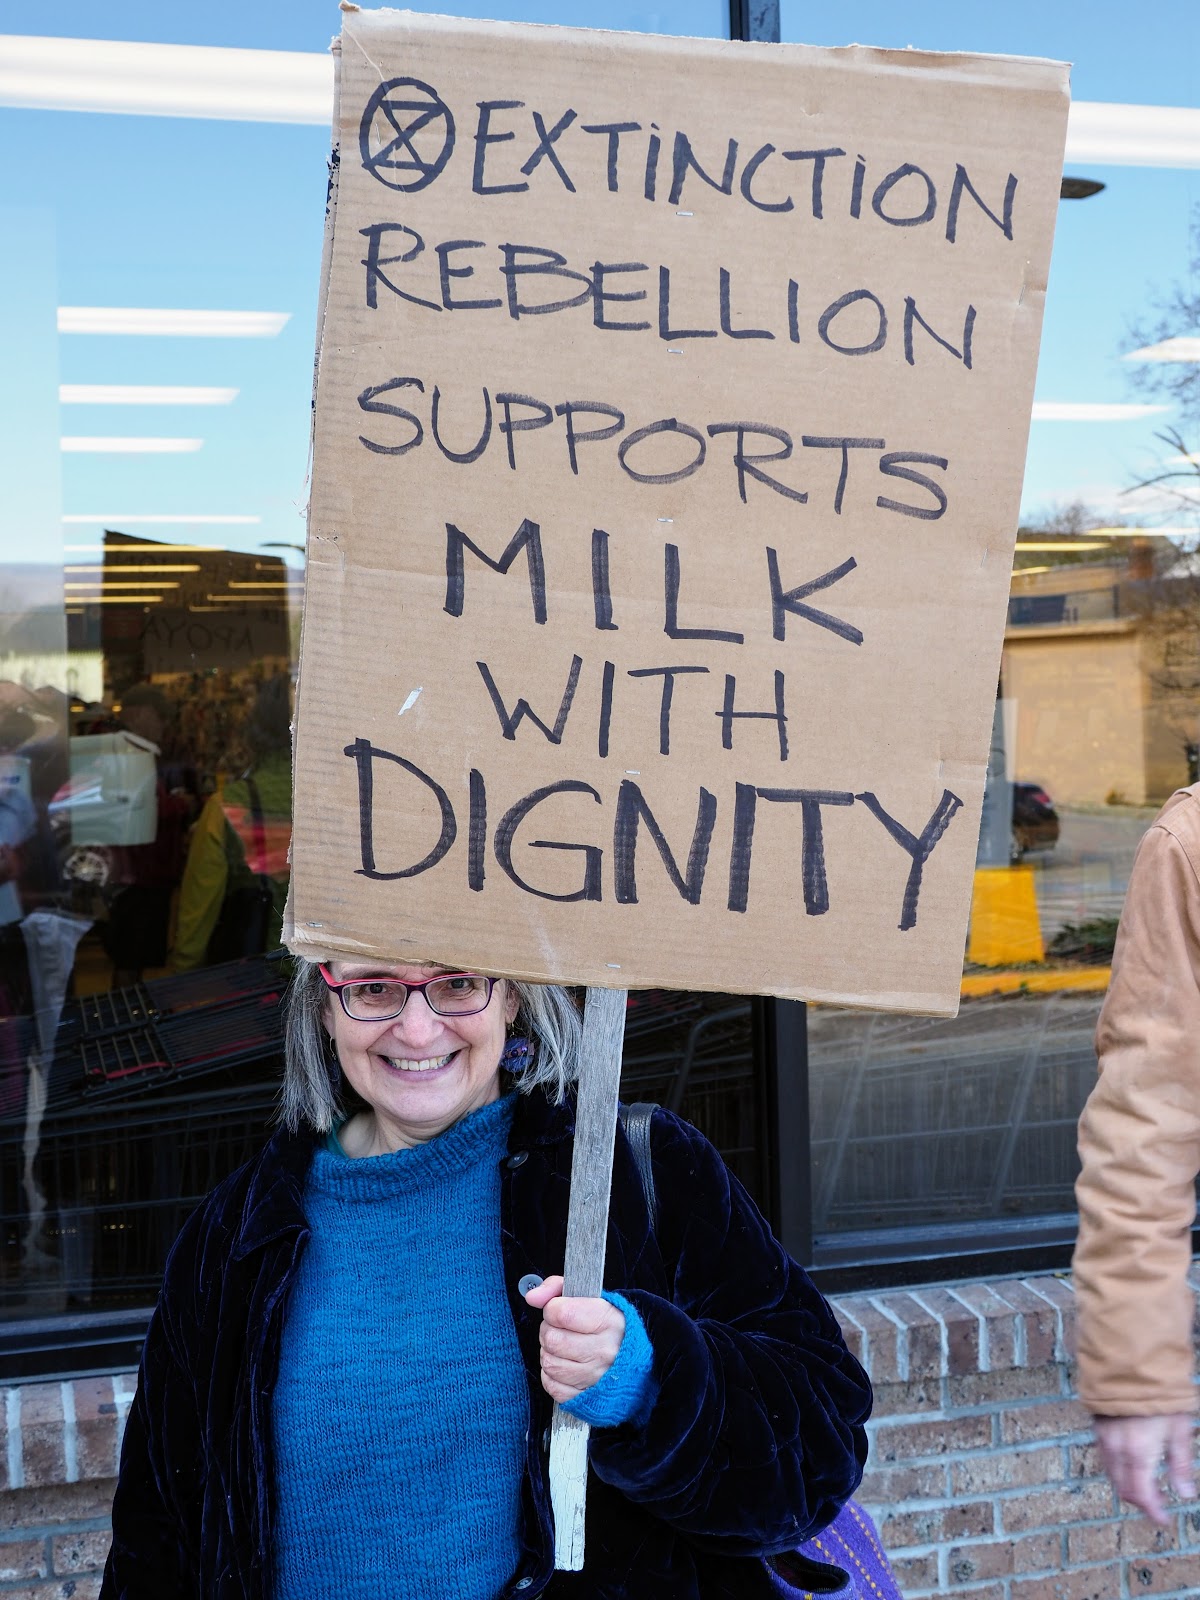 EXTINCTION
REBELLION
SUPPORTS
MILK
WITH
DIGNITY
APOYA